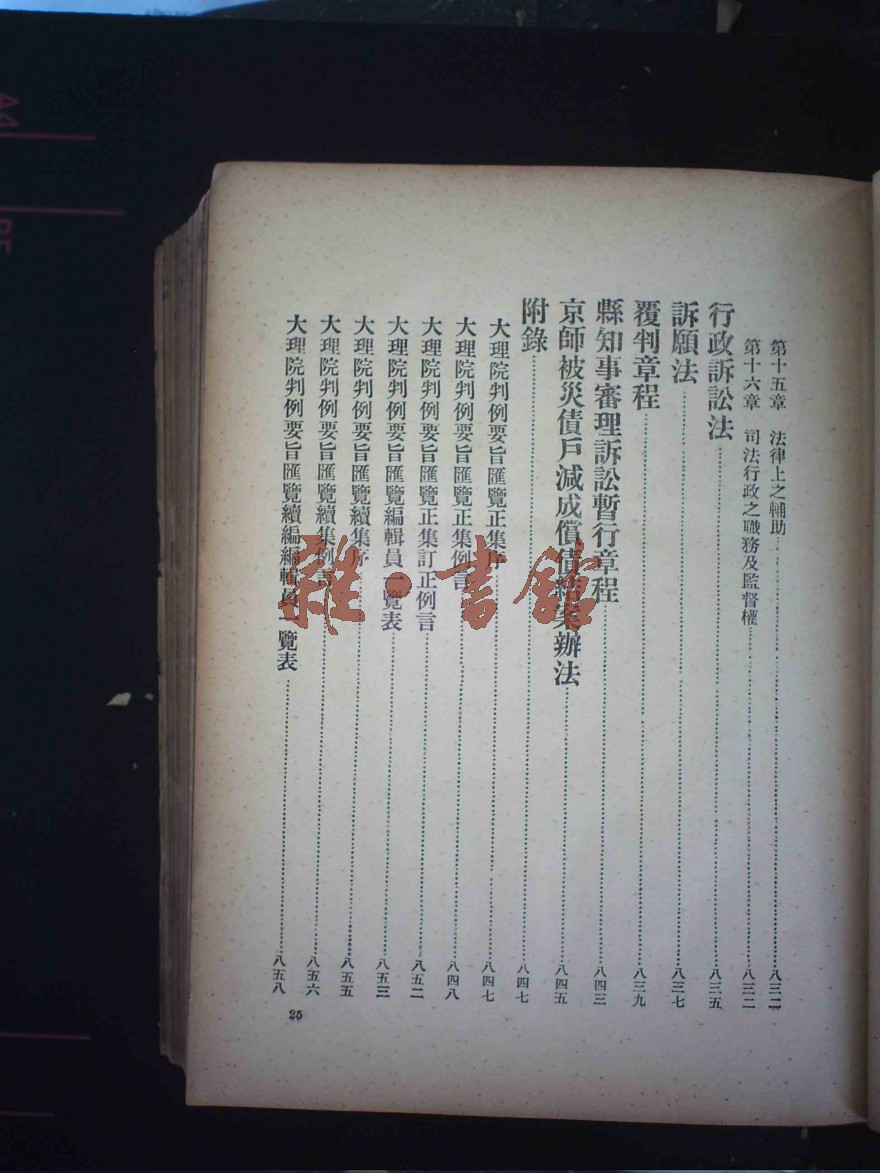 第十五章　法律上之輔助……八三二
第十六章　司法行政之職務及監督權……八三二
行政訴訟法……八三五
訴願法……八三七
覆判章程……八三九
縣知事審理訴訟暫行章程……八四三
京師被災債戶減成償債結案辦法……八四五
附錄……八四七
大理院判例要旨匯覽正集序……八四七
大理院判例要旨匯覽正集例言……八四八
大理院判例要旨匯覽正集訂正例言……八五二
大理院判例要旨匯覽編輯員一覽表……八五三
大理院判例要旨匯覽續集序……八五五
大理院判例要旨匯覽續集例言……八五六
大理院判例要旨匯覽續編編輯員一覽表……八五八
25
雜·書館